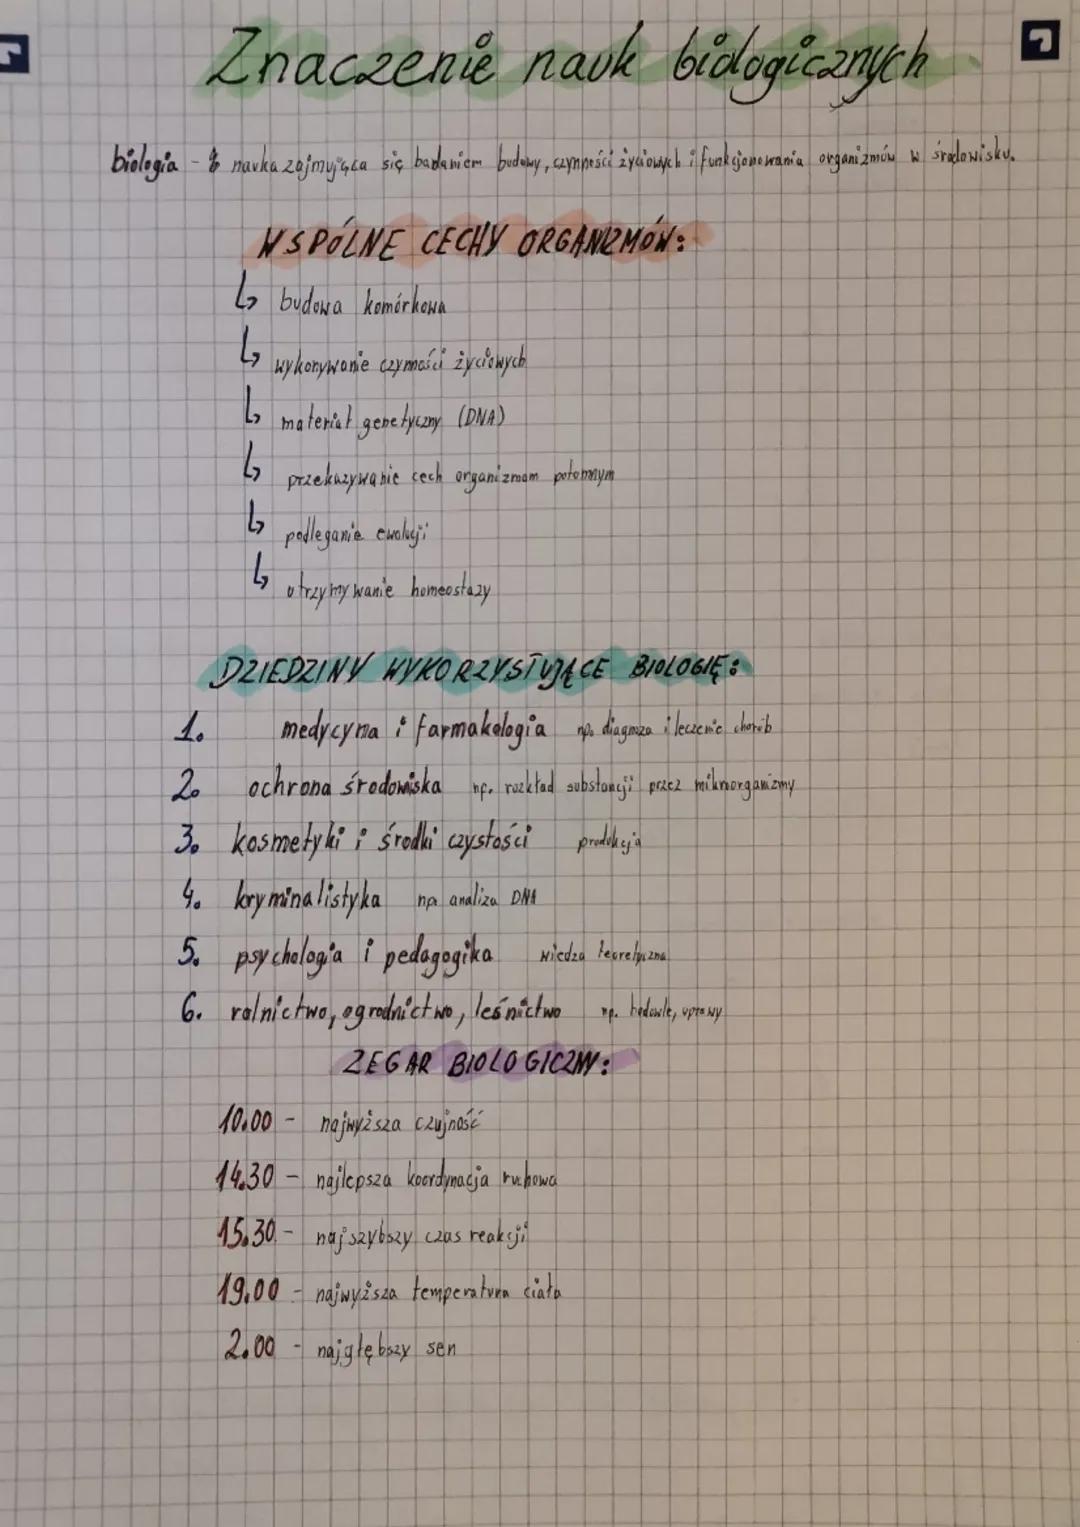 Znaczenie nauk biologicznych
biologia - nauka zajmująca się badaniem budowy, czynności życiowych i funkcjonowania organizmów w środowisku.
WSPÓLNE CECHY ORGANIZMÓW:
↳ budowa komórkowa
↳ wykonywanie czynności życiowych
↳ materiał genetyczny (DNA)
↳ przekazywanie cech organizmom potomnym
↳ podleganie ewolucji
↳ utrzymywanie homeostazy
DZIEDZINY WYKORZYSTUJĄCE BIOLOGIĘ:
1. medycyna i farmakologia np. diagnoza i leczenie chorób
2. ochrona środowiska np. rozkład substancji przez mikroorganizmy
3. kosmetyki i środki czystości produkcja
4. kryminalistyka np. analiza DNA
5. psychologia i pedagogika wiedza teoretyczna
6. rolnictwo, ogrodnictwo, leśnictwo np. hodowle, uprawy
ZEGAR BIOLOGICZNY:
10.00 - najwyższa czujność
14.30 - najlepsza koordynacja ruchowa
15.30 - najszybszy czas reakcji
19.00 - najwyższa temperatura ciała
2.00 - najgłębszy sen